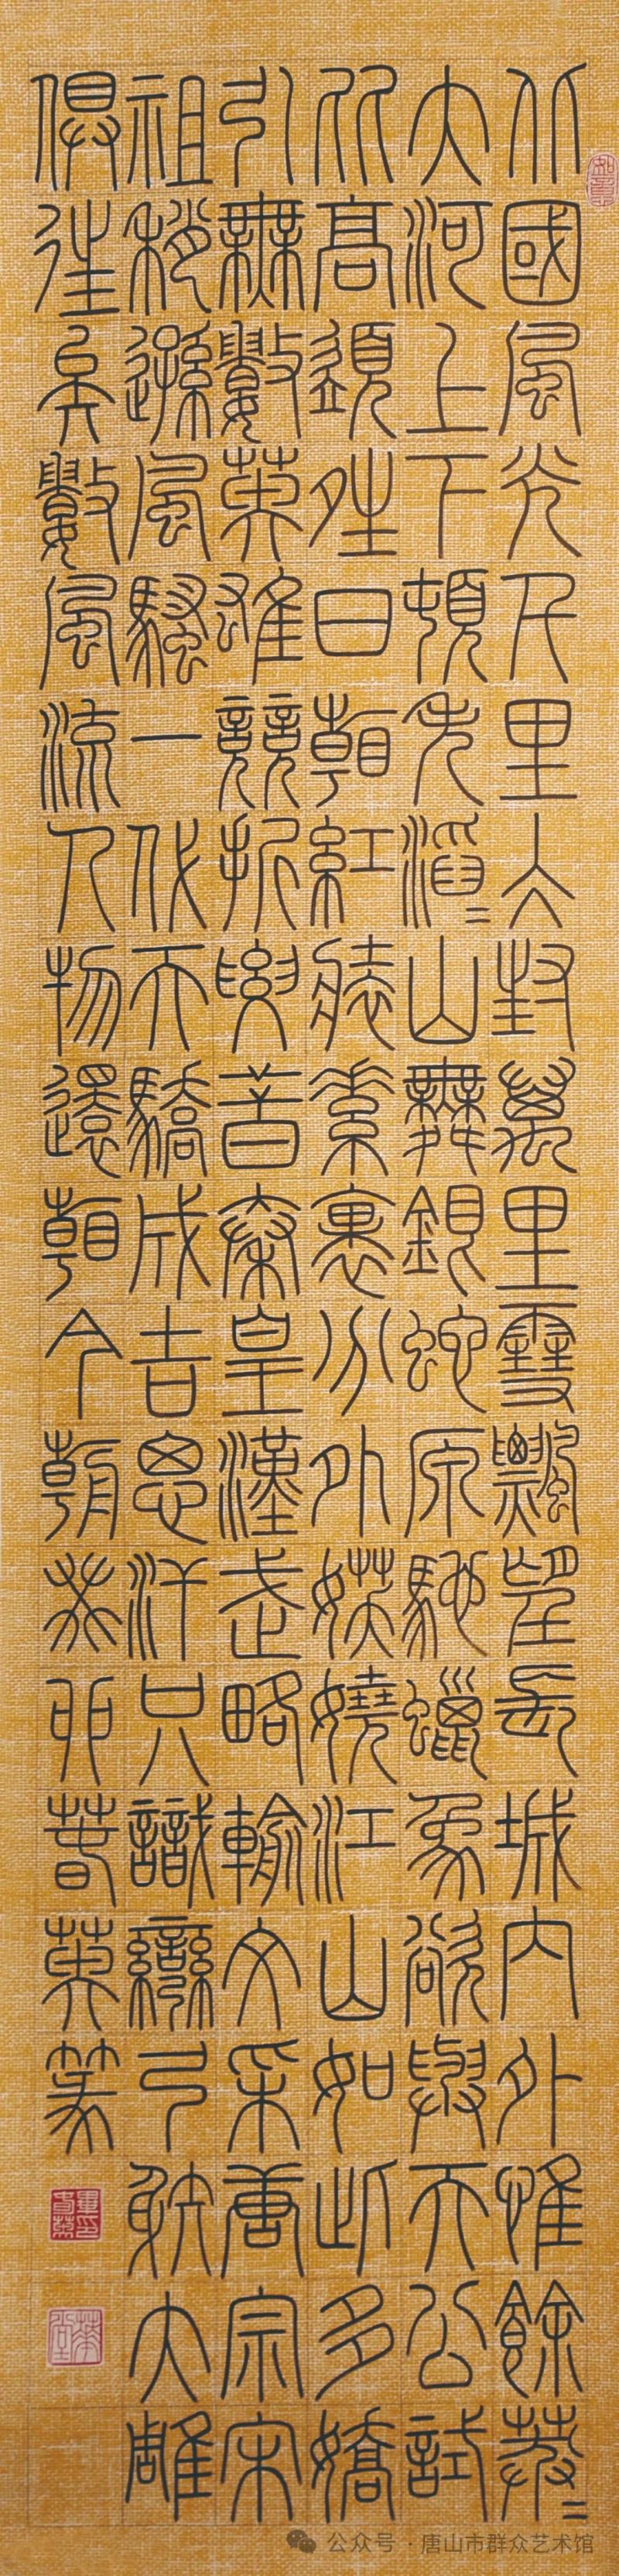 北國風光千里冰封萬里雪飄望長城內外惟餘莽〻
大河上下頓失滔〻山舞銀蛇原馳蠟象欲與天公試
比高須夝日看紅裝素裹分外妖嬈江山如此多嬌
引無數英雄競折腰惜秦皇漢武略輸文采唐宗宋
祖稍遜風騷一代天驕成吉思汗只識彎弓射大雕
俱往矣數風流人物還看今朝癸卯春英篆
公众号 · 唐山市群众艺术馆